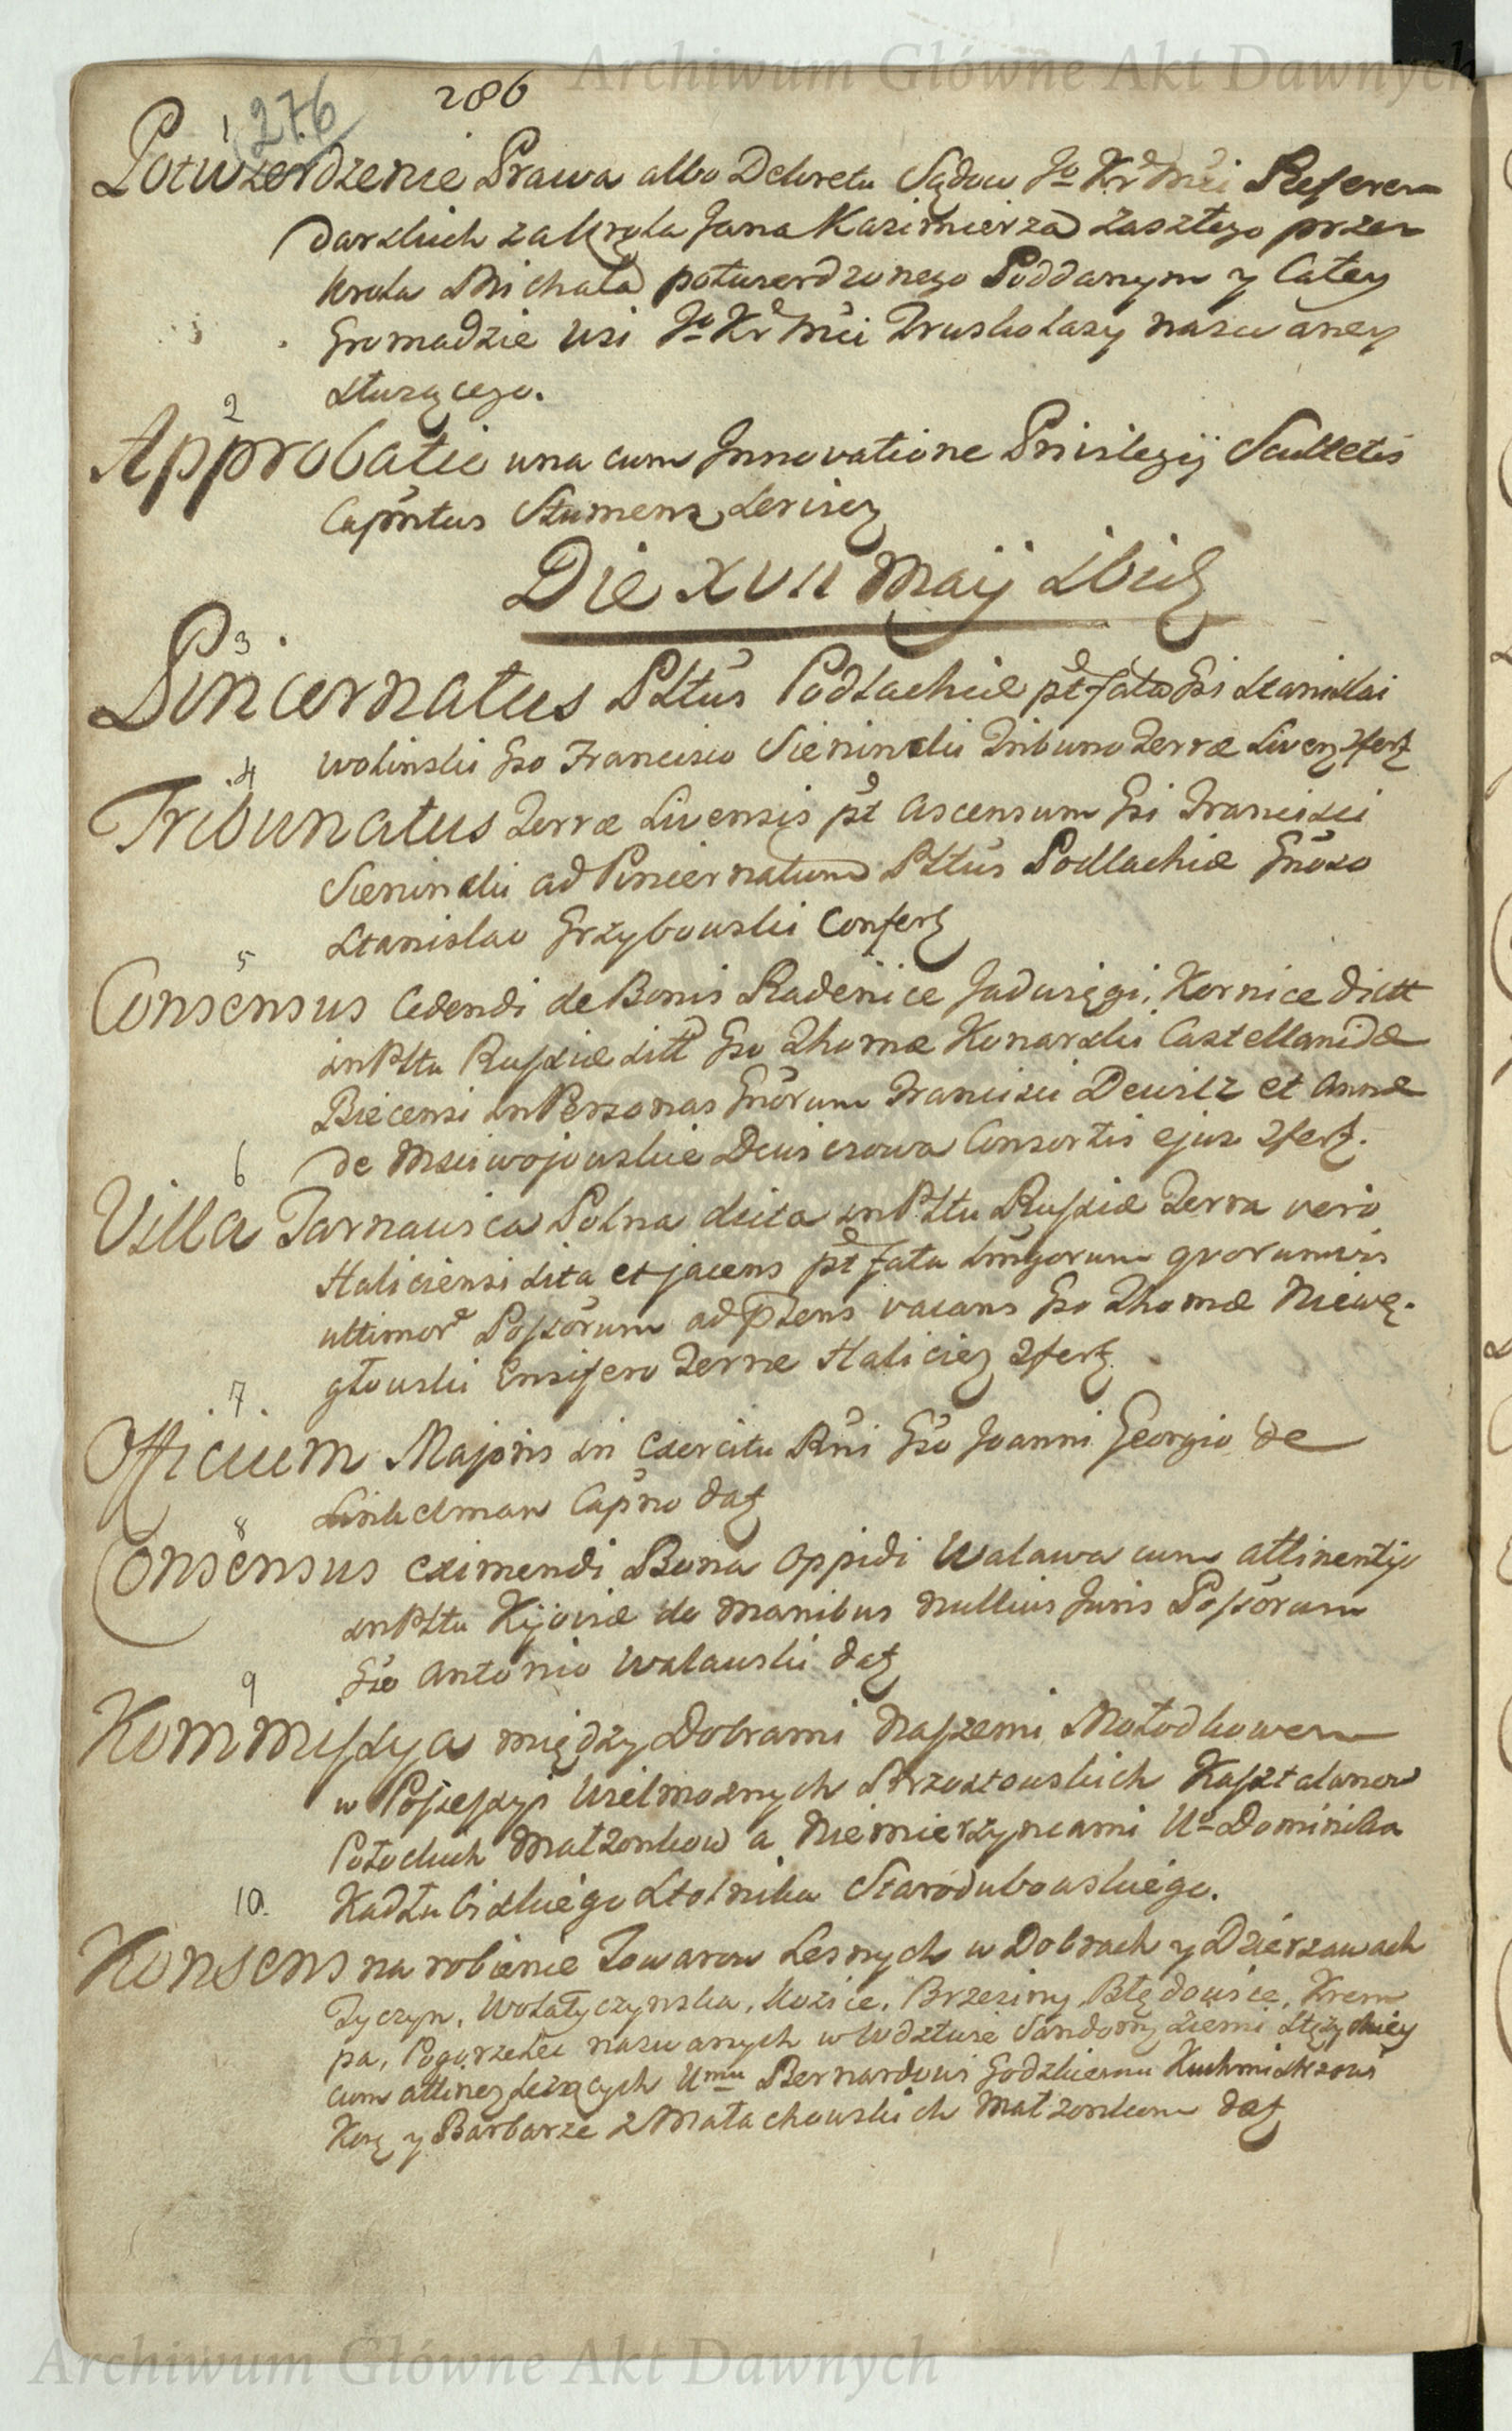 Archiwum Główne Akt Dawnych
286
276
1
Potwierdzenie Prawa albo Dekretu Sądow Jo Kr Mci Referen
darskich za Krola Jana Kazimierza zaszłego przez
Krola Michała potwierdzonego Poddanym y Całey
Gromadzie Wsi Jo Kr Mci Truskolasy nazwaney
służącego.
2
Approbatio una cum Innovatione Privilegij Scultetis
Capntus Stumens servien
Die XVII Maij ibid
3
Pincernatus Pltus Podlachiæ pt fata Gsi Stanislai
Wolinski Gso Francisco Sieninski Tribuno Terræ Liven Confert
4
Tribunatus Terræ Livensis pt Ascensum Gsi Francisci
Sieninski ad Pincernatum Pltus Podlachiæ Gnoso
Stanislao Grzybowski Confert
5
Consensus Cedendi de Bonis Radenice Jaduięgi, Kornice dictt
in Pltu Russiæ sitt Gso Thomæ Konarski Castellanidæ
Biecensi in Personas Gnorum Francisci Dewicz et Annæ
de Msciwojowskie Dewiczowa Consortis ejus Confert.
6
Villa Tarnawica Polna dicta in Pltu Russiæ Terra vero
Haliciensi sita et jacens pt fata quorumvis
ultimor Possorum ad Ptens vacans Gso Thomæ Niewę.
głowski Ensifero Terræ Halicien Confert
7
Officium Majoris in Exercitu Rni Gso Joanni Georgio de
Linkelman Capneo dat
8
Consensus eximendi Bona Oppidi Walawa cum attinentijs
in Pltu Kijoviæ de manibus nullius Juris Possorum
Gso Antonio Walawski dat
9
Kommissya między Dobrami Naszemi Mołodkowem
w Possessyi Wielmoznych Strzeszowskich Kasztelanow
Połockich Małzonkow a Niemierzyncami Uo Dominika
Kadłubiskiego Stolnika Starodubowskiego.
10.
Konsens na robienie Towarow Lesnych w Dobrach y Dzierzawach
Zyczyn, Wola Zyczynska, Kozice, Brzeziny, Błędowice, Krem
pa, Pogorzelec nazwanych w Wdztwie Sandom ziemi Stęzyckiey
cum attinen Lezących Umu Bernardowi Godzkiemu Kuchmistrzowi
Kor y Barbarze z Małachowskich Małzonkom dat
Archiwum Główne Akt Dawnych